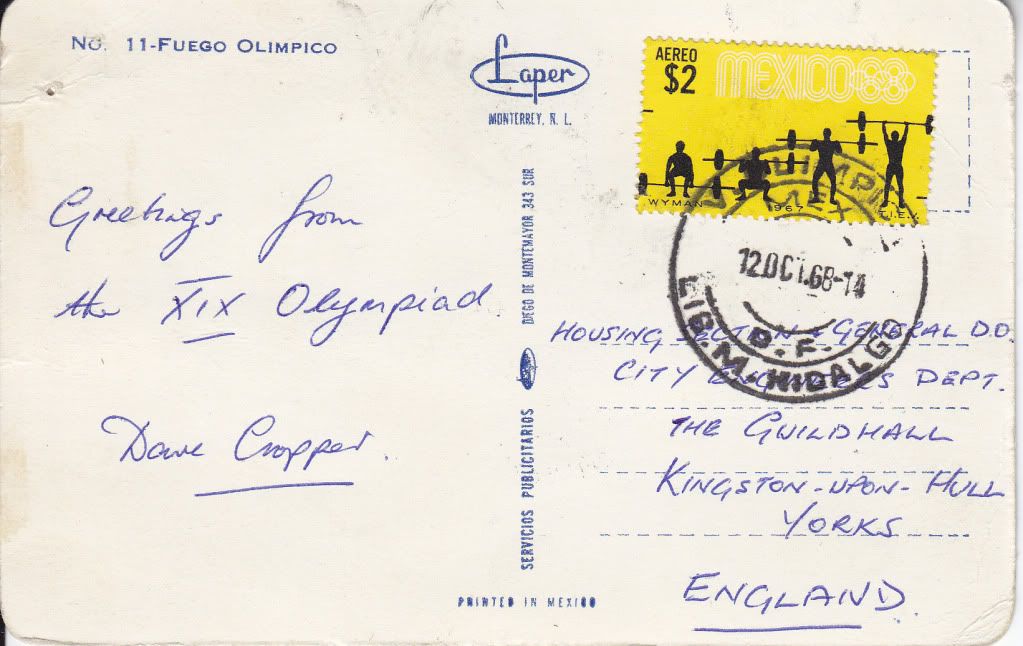 No. 11-FUEGO OLIMPICO
Laper
MONTERREY, N. L.
AEREO
$2
MEXICO68
WYMAN 1967 T.I.E.V.
12 OCT. 68-14
D. F.
M. HIDALGO
Greetings from
the XIX Olympiad.
Dave Cropper.
SERVICIOS PUBLICITARIOS DIEGO DE MONTEMAYOR 343 SUR
HOUSING SECTION & GENERAL D.O.
CITY ENGINEERS DEPT.
THE GUILDHALL
KINGSTON-UPON-HULL
YORKS
ENGLAND.
PRINTED IN MEXICO